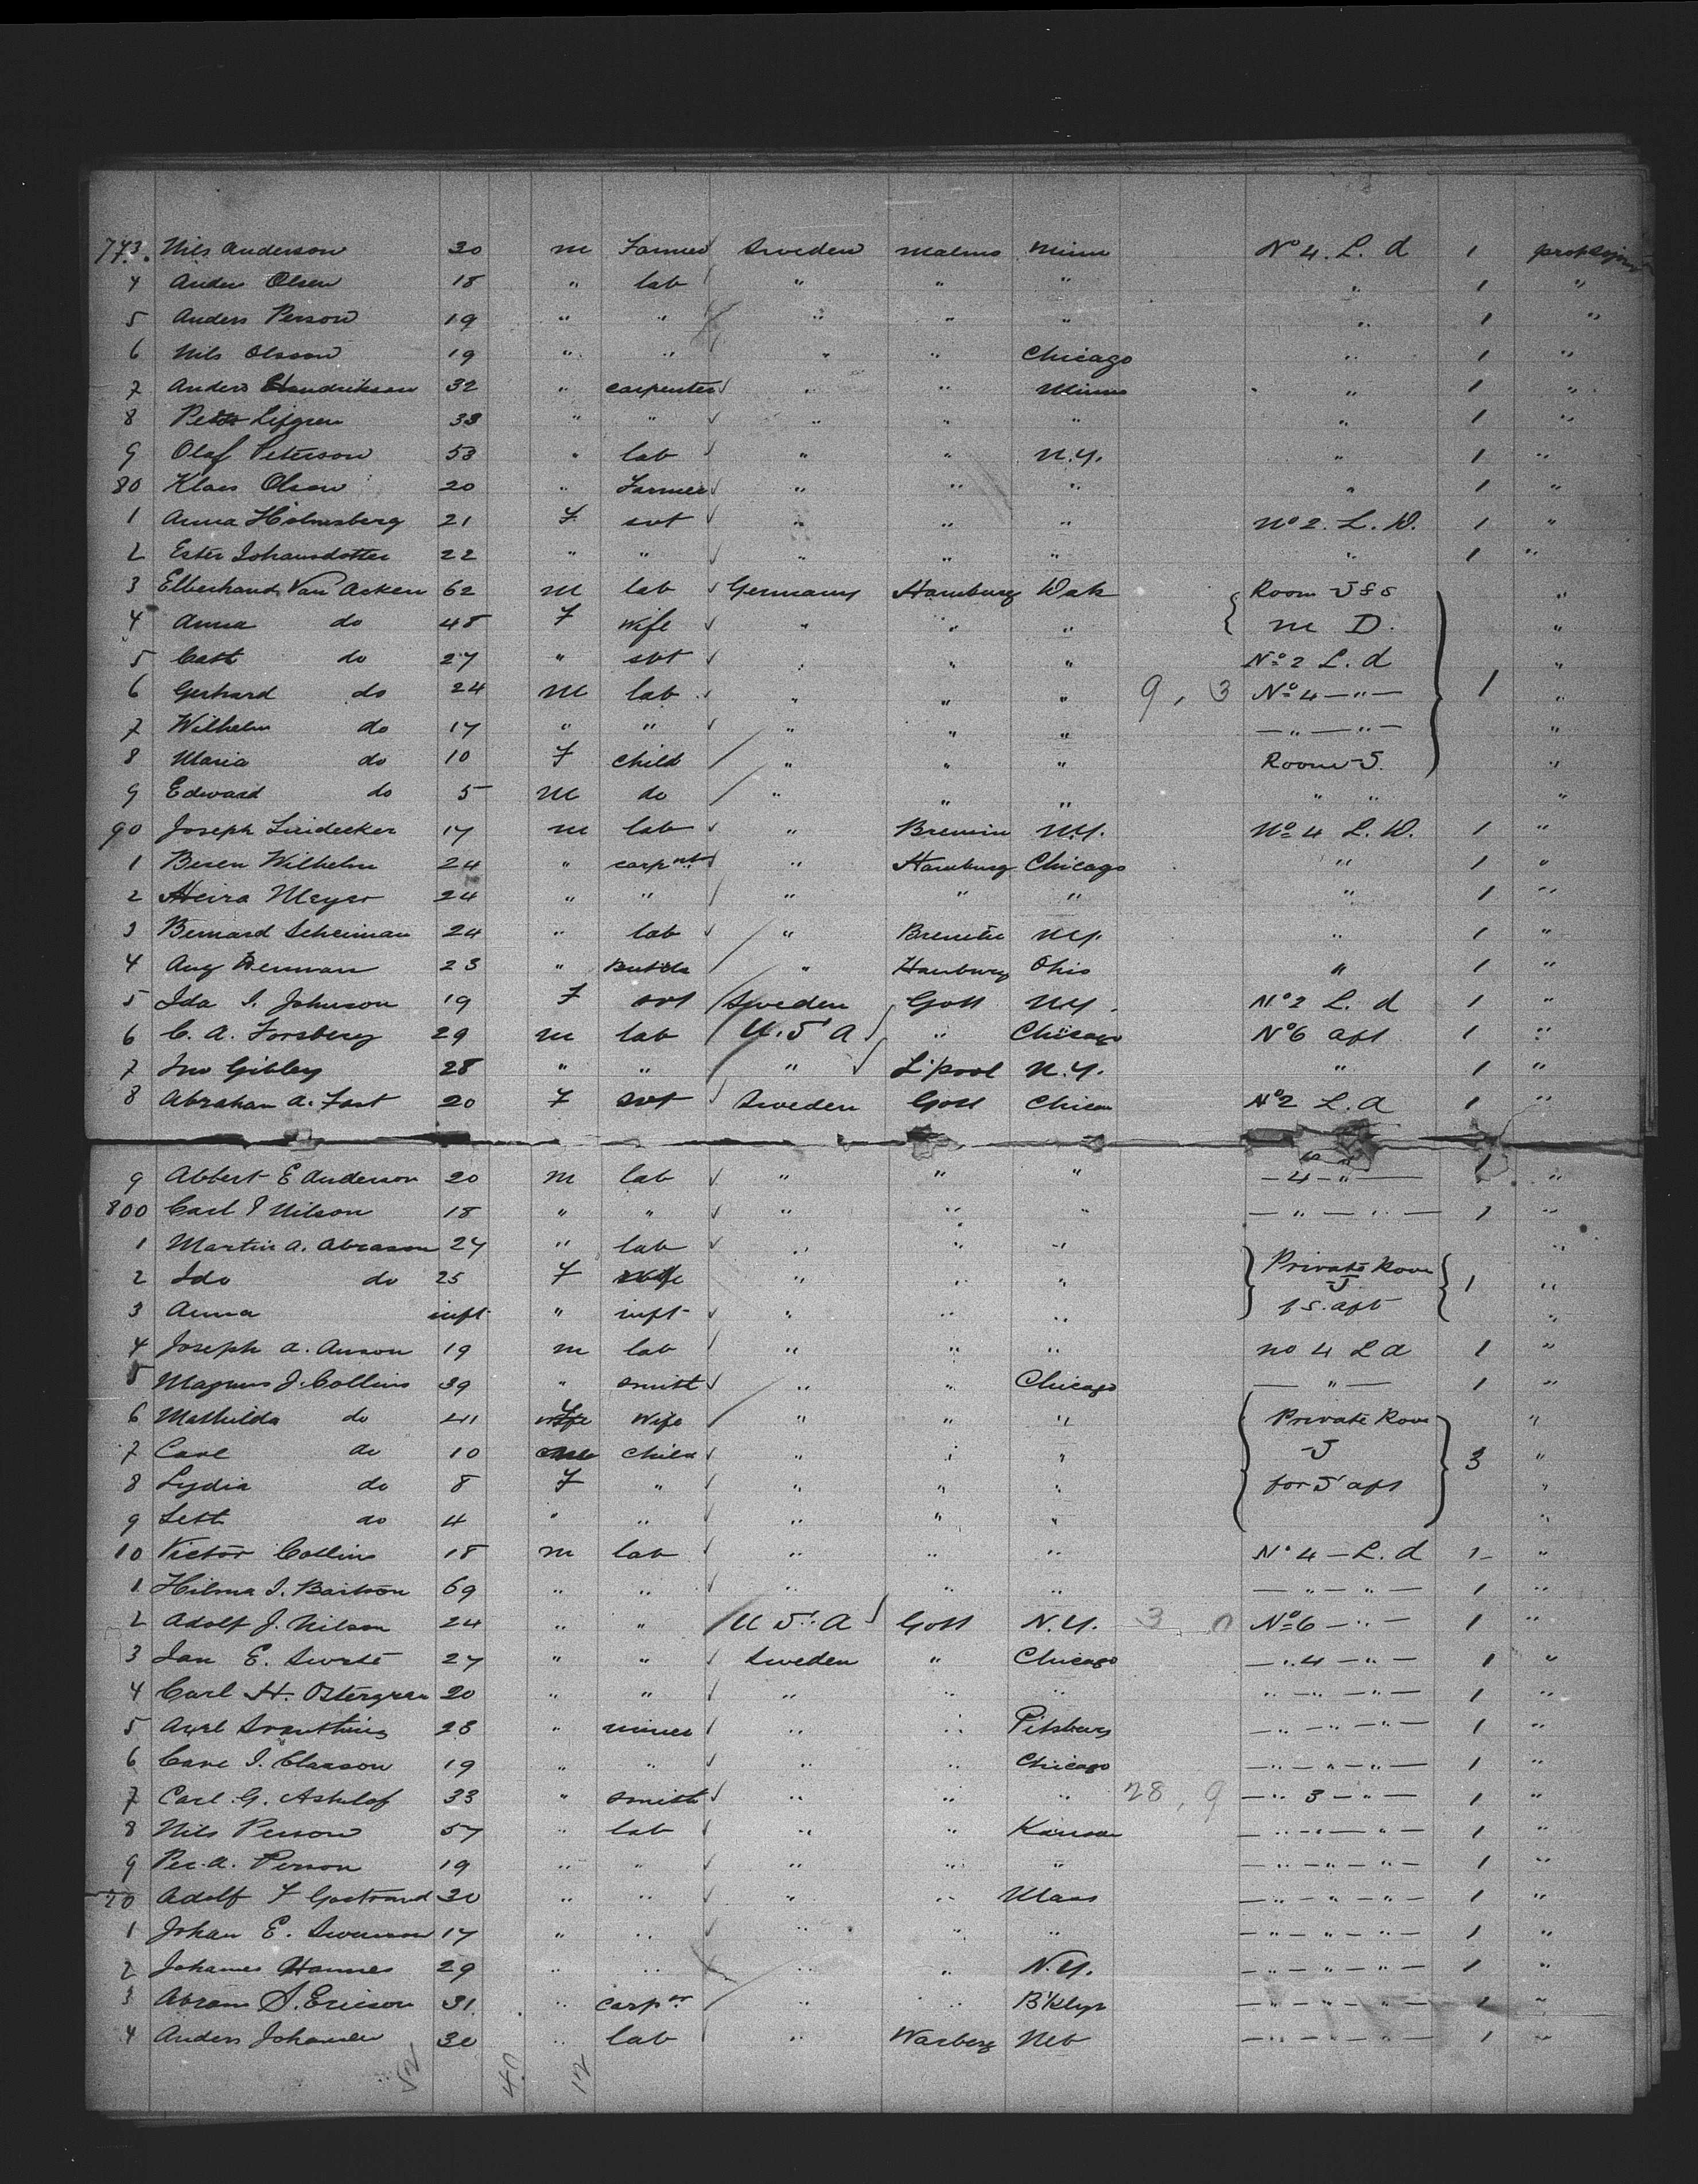 773. Nils Anderson 30 m Farmer Sweden Malmo Minn No 4. L. d 1 
4 Anders Olsen 18 " lab " " " " 1 "
5 Anders Person 19 " " " " " " 1 "
6 Nils Olsson 19 " " " " Chicago " 1 "
7 Anders Hendrikson 32 " carpenter " " Minn " 1 "
8 Peter Lifgren 33 " " " " " " 1 "
9 Olaf Peterson 53 " lab " " N.Y. " 1 "
80 Klaes Olson 20 " Farmer " " " " 1 "
1 Anna Holmsberg 21 F svt " " " No 2. L. D. 1 "
2 Ester Johansdotter 22 " " " " " " 1 "
3 Van Acken 62 m lab Germany Hamburg Dak Room "
4 Anna do 48 F wife " " " M D. "
5 Cath do 27 " svt " " " No 2 L. d "
6 Gerhard do 24 m lab " " " 9, 3 No 4 — " — 1 "
7 Wilhelm do 17 " " " " " — " — " — "
8 Maria do 10 F child " " " Room S. "
9 Edward do 5 m do " " " " " "
90 Joseph 17 m lab " Bremin N.Y. No 4 L. D. 1 "
1 Besen Wilhelm 24 " carpnt " Hamburg Chicago " 1 "
2 Meyer 24 " " " " " " 1 "
3 Bernard Scheiman 24 " lab " Bremen N.Y. " 1 "
4 Aug 23 " " Hamburg Ohio " 1 "
5 Ida I. Johnson 19 F svt Sweden Gott N.Y. No 2 L. d 1 "
6 C. A. Forsberg 29 m lab U.S A " Chicago No 6 aft 1 "
7 Jno Gibley 28 " " " L'pool N.Y. " 1 "
8 Abraham A. Fast 20 F svt Sweden Gott Chicao No 2 L. d 1 "
9 Abbert E Anderson 20 m lab " " " — 4 — " — 1 "
800 Carl I Nilson 18 " " " " " — " — " — 1 "
1 Martin A. Abrason 27 " lab " " " "
2 Ida do 25 F wife " " " Private Room 5 1 "
3 Anna inft " inft " " " f S. aft "
4 Joseph A. Anson 19 m lab " " " no 4 L d 1 "
5 Magnus J. Collins 39 " smith " " Chicago — " — 1 "
6 Mathilda do 41 F Wife " " " Private Room "
7 Carl do 10 m child " " " 5 3 "
8 Lydia do 8 F " " " " for 5 aft "
9 Seth do 4 " " " " " "
10 Victor Collins 18 m lab " " " No 4 — L. d 1 "
1 Hilma I. 69 " " " " " — " — " — 1 "
2 Adolf J. Nilson 24 " " U S. A Gott N.Y. 3 0 No 6 — " — 1 "
3 Jan E. 27 " " Sweden " Chicago — " 4 — " — 1 "
4 Carl H. Ostergren 20 " " " " " " — " — " — 1 "
5 Axel 28 " miner " " Pitsburg — " — " — " — 1 "
6 Carl I. Claason 19 " " " " Chicago — " — " — " — 1 "
7 Carl G. 33 " smith " " " 28, 9 — " 3 — " — 1 "
8 Nils Person 57 " lab " " Kansas — " — " — " — 1 "
9 Per. A. Person 19 " " " " " — " — " — " — 1 "
20 Adolf F 30 " " " " Mass — " — " — " — 1 "
1 Johan E. Swenson 17 " " " " " — " — " — " — 1 "
2 Johannes Hannes 29 " " " " N.Y. — " — " — " — 1 "
3 Abram S. Ericson 31 " carpnr " " B'klyn — " — " — " — 1 "
4 Anders Johansen 30 " lab " Warberg Neb — " — " — " — 1 "
52 40 12